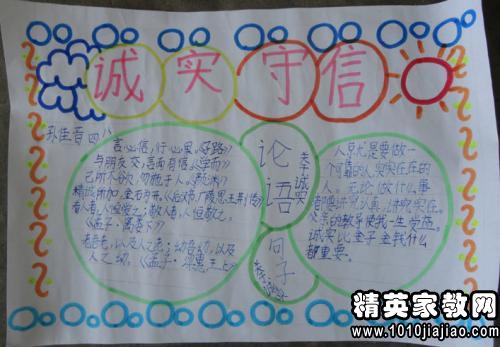 诚实守信
孙佳音 四
言必信,行必果。《子路》
与朋友交,言而有信。《学而》
己所不欲,勿施于人。《颜渊》
精诚所加,金石为开。《后汉书·广陵思王荆传》
爱人者,人恒爱之;敬人者,人恒敬之。
《孟子·离娄下》
老吾老,以及人之老;幼吾幼,以及
人之幼。《孟子·梁惠王上》
论语
句子
人总是要做一
个 的人,实实在在的
人。无论做什么事
认真,讲究实在。
父亲的教导使我一生受益。
诚实比金子金钱什么
都重要。
精英家教网
www.1010jiajiao.com